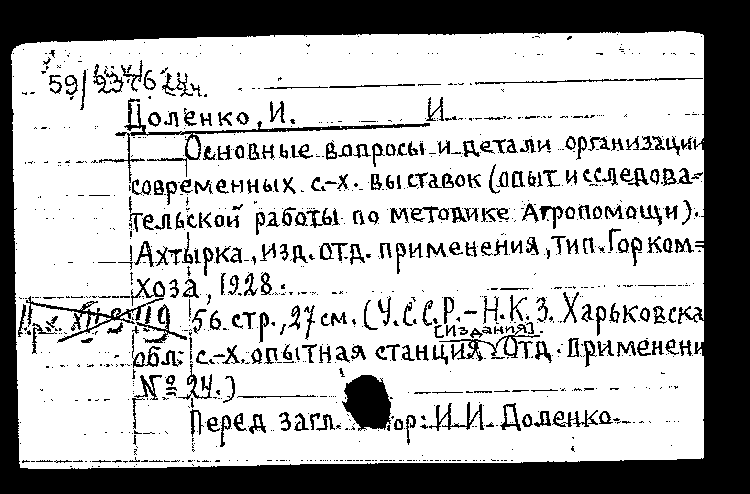 59/23762
Доленко, И. И
Основные вопросы и детали организации
современных с.-х. выставок (опыт исследова=
тельской работы по методике Агропомощи).
Ахтырка, изд. отд. применения, тип. Горком=
хоза, 1928.
56 стр., 27 см. (У.С.С.Р. – Н.К.З. Харьковска
[Издания]
обл. с.-х. опытная станция Отд. Применени
№ 24.)
Перед загл. ор: И. И. Доленко.